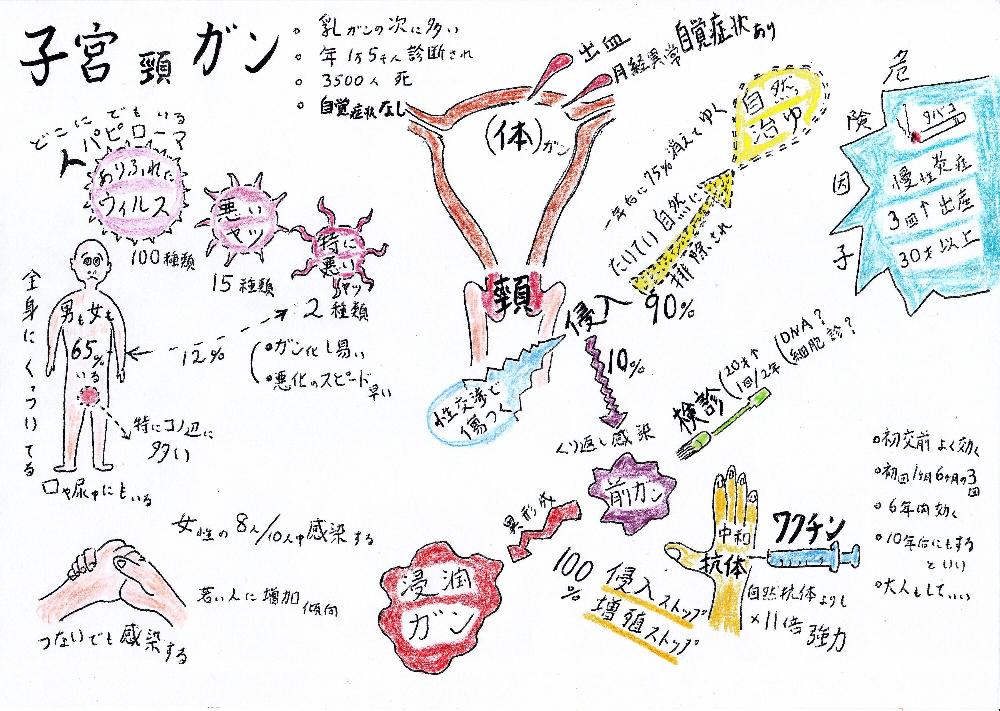 子宮頸ガン
乳ガンの次に多い
年1万5千人診断され
3500人死
自覚症状なし
出血
月経異常
自覚症状あり
(体)ガン
頸
どこにでもいる
ヒトパピローマ
ありふれた
ウィルス
100種類
悪い
ヤツ
15種類
特に
悪い
ヤツ
2種類
全身にくっついてる
男も女も
65%
いる
12%
ガン化し易い
悪化のスピード
早い
特にコノ辺に
多い
口や尿中にもいる
女性の8人/10人中感染する
若い人に増加傾向
つないでも感染する
性交渉で
傷つく
侵入
90%
一年后に75%消えてゆく
たいてい自然に
排除され
自然
治ゆ
危険因子
タバコ
慢性炎症
3回↑出産
30才以上
10%
くり返し感染
前ガン
異形成
浸潤
ガン
検診
(20才↑
1回/2年
(DNA?
細胞診?
中和
抗体
ワクチン
自然抗体よりも
×11倍強力
100%
侵入ストップ
増殖ストップ
初交前よく効く
初回1ヶ月6ヶ月の3回
6年内効く
10年后にもする
といい
大人もしていい